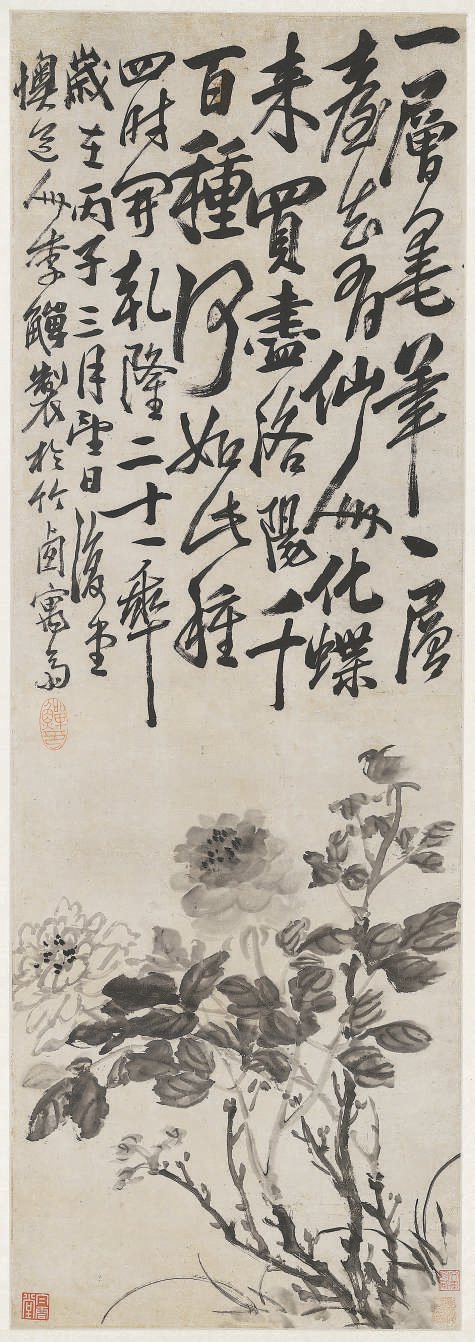 一層毫筆一層
臺有仙人化蝶
來買盡洛陽千
百種何如此種
四時開乾隆二十一年
歲在丙子三月望日復堂
懊道人李鱓製於竹西寓齋